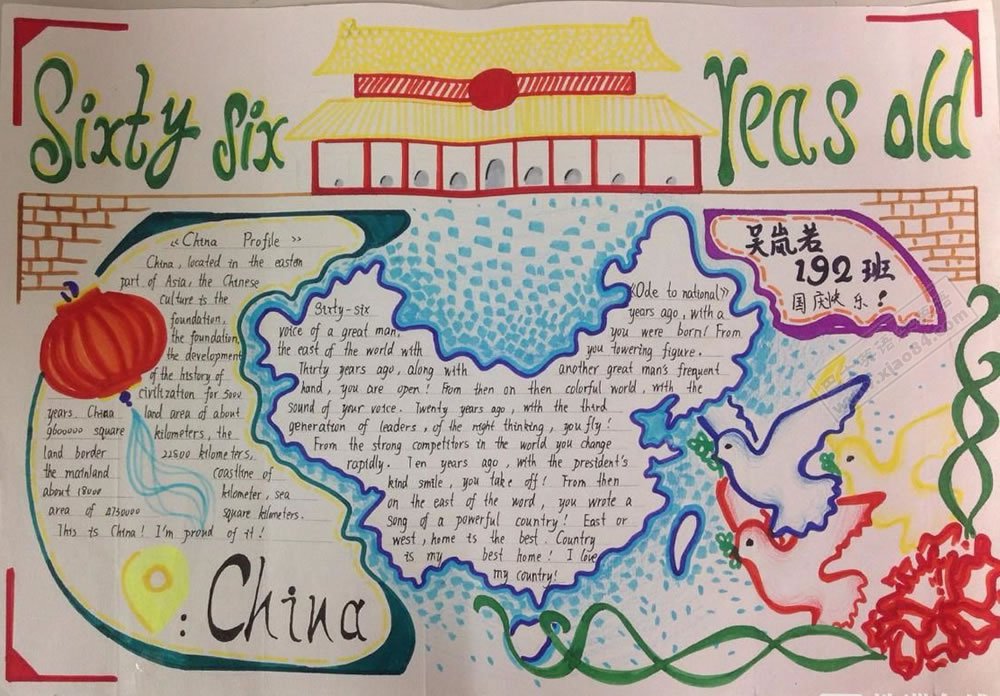 Sixty six
Yeas old
《China Profile》
China, located in the easten
part of Asia, the Chinese
culture is the
foundation,
the foundation,
the development
of the history of
civilization for 5000
years. China land area of about
9600000 square kilometers, the
land border 22500 kilometers,
the mainland coastline of
about 18000 kilometer, sea
area of 4730000 square kilometers.
This is China! I'm proud of it!
: China
《Ode to national》
Sixty-six years ago, with a
voice of a great man, you were born! From
the east of the world with you towering figure.
Thirty years ago, along with another great man's frequent
hand, you are open! From then on then colorful world, with the
sound of your voice. Twenty years ago, with the third
generation of leaders, of the right thinking, you fly!
From the strong competitors in the world you change
rapidly. Ten years ago, with the president's
kind smile, you take off! From then
on the east of the word, you wrote a
song of a powerful country! East or
west, home is the best. Country
is my best home! I love
my country!
吴岚若
192班
国庆快乐!
www.xiao84.com